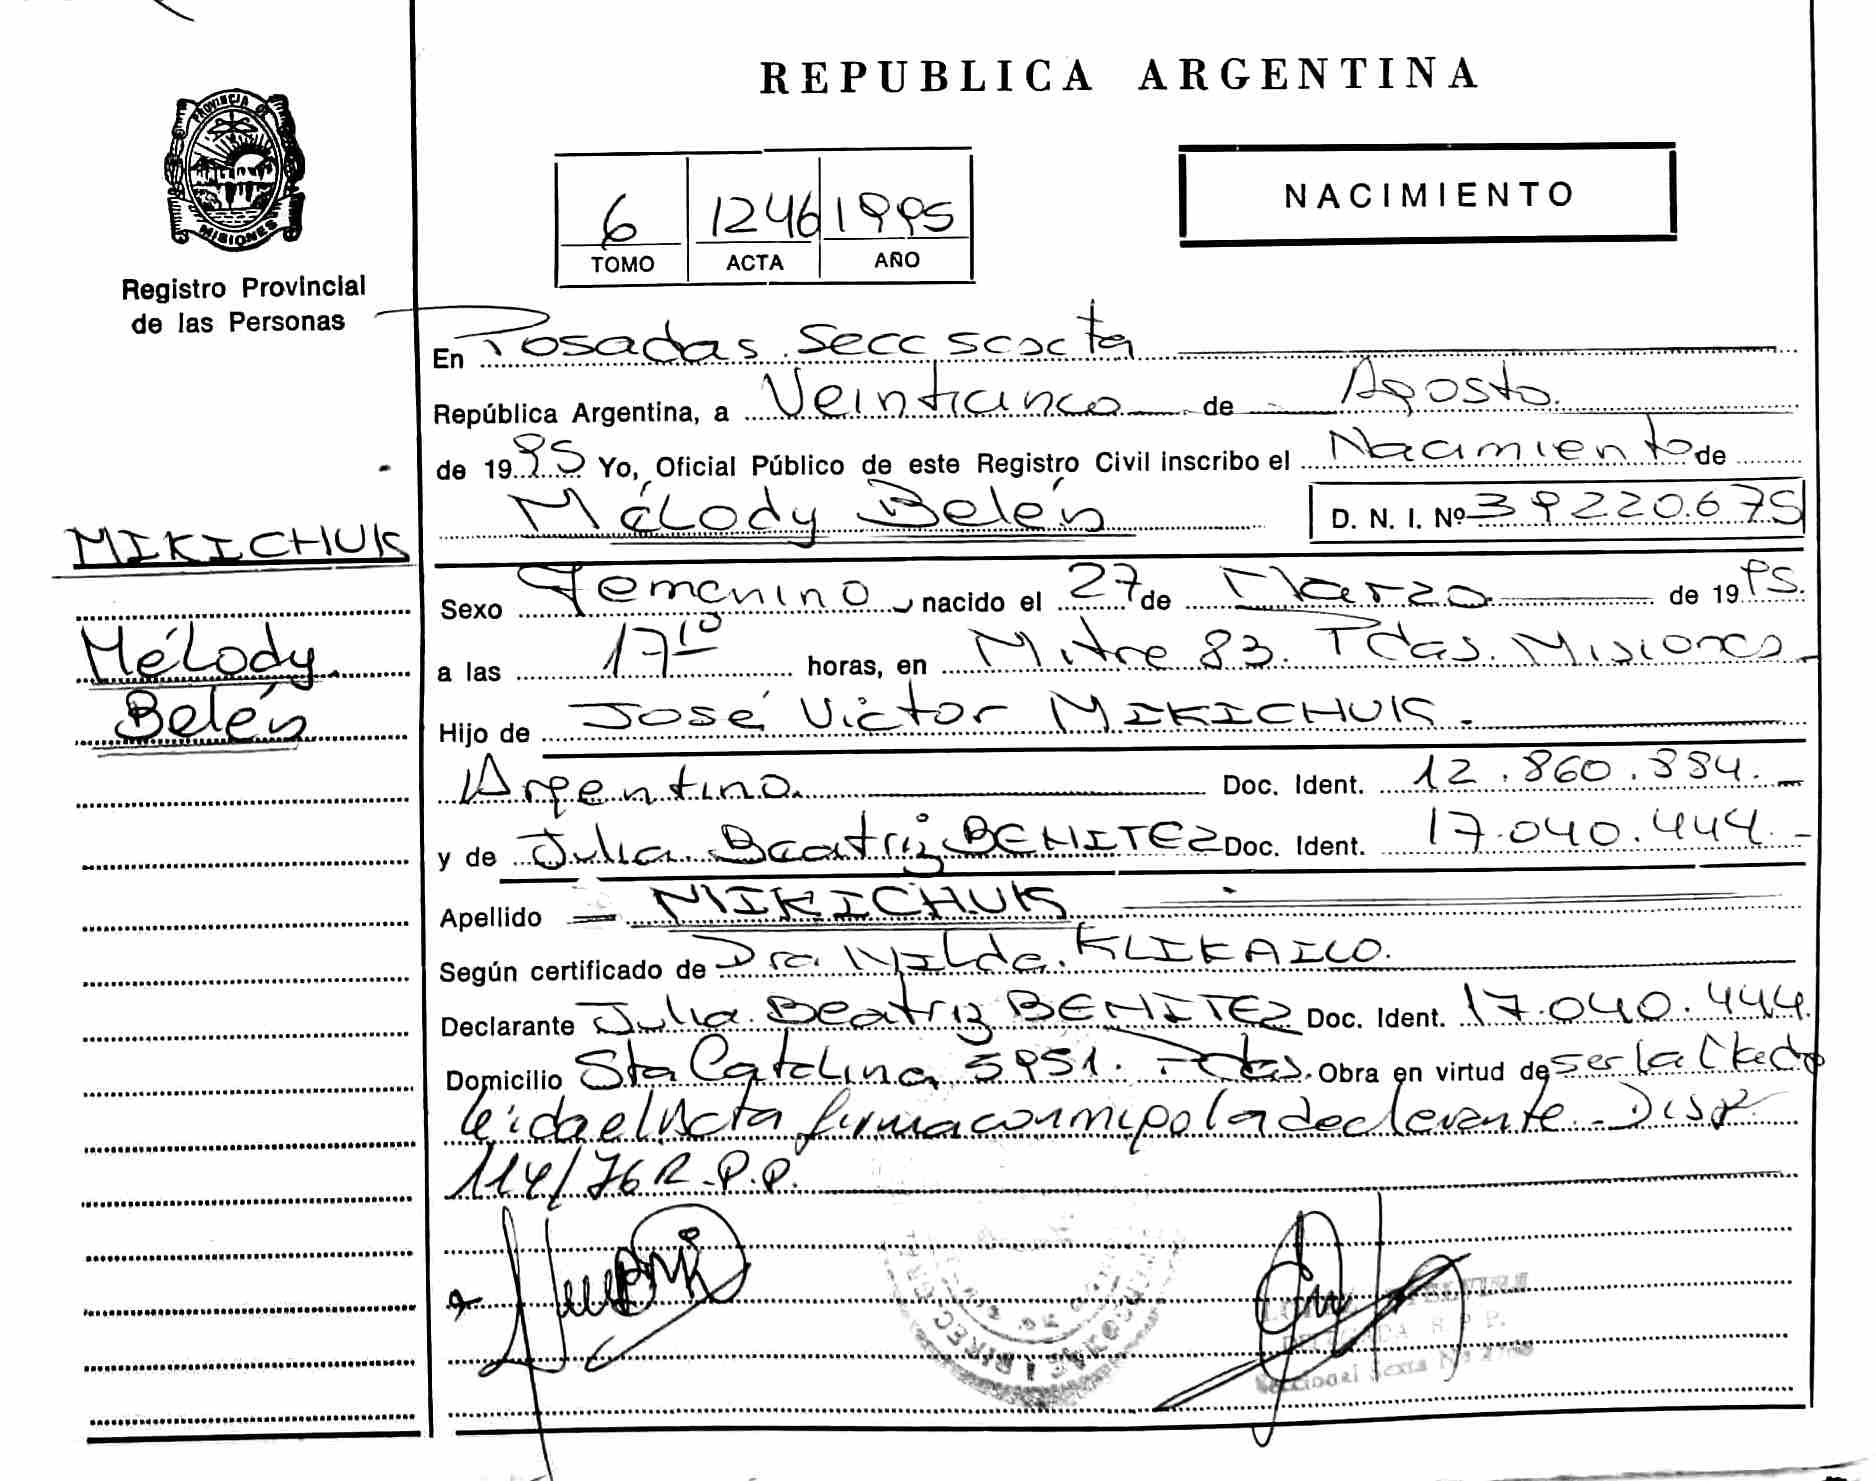 REPUBLICA ARGENTINA
PROVINCIA DE
MISIONES
Registro Provincial
de las Personas
NACIMIENTO
6 1246 1995
TOMO ACTA AÑO
En Posadas. Secc sexta
República Argentina, a Veinticinco de Agosto.
de 1995 Yo, Oficial Público de este Registro Civil inscribo el Nacimiento de
Mélody Belén D. N. I. Nº 39220.675
MIKICHUK
Mélody.
Belén
Sexo Femenino, nacido el 27 de Marzo de 1995.
a las 17 10 horas, en Mitre 83. Pdas. Misiones
Hijo de José Victor MIKICHUK.
Argentino. Doc. Ident. 12.860.334.
y de Julia Beatriz BENITEZ Doc. Ident. 17.040.444.
Apellido MIKICHUK
Según certificado de Dra. Nilda.
Declarante Julia Beatriz BENITEZ Doc. Ident. 17.040.444.
Domicilio Sta Catalina 5951. Pdas. Obra en virtud de ser la Madre
leida el Acta firma conmigo la declarante. Disp.
114/76 R.P.P.